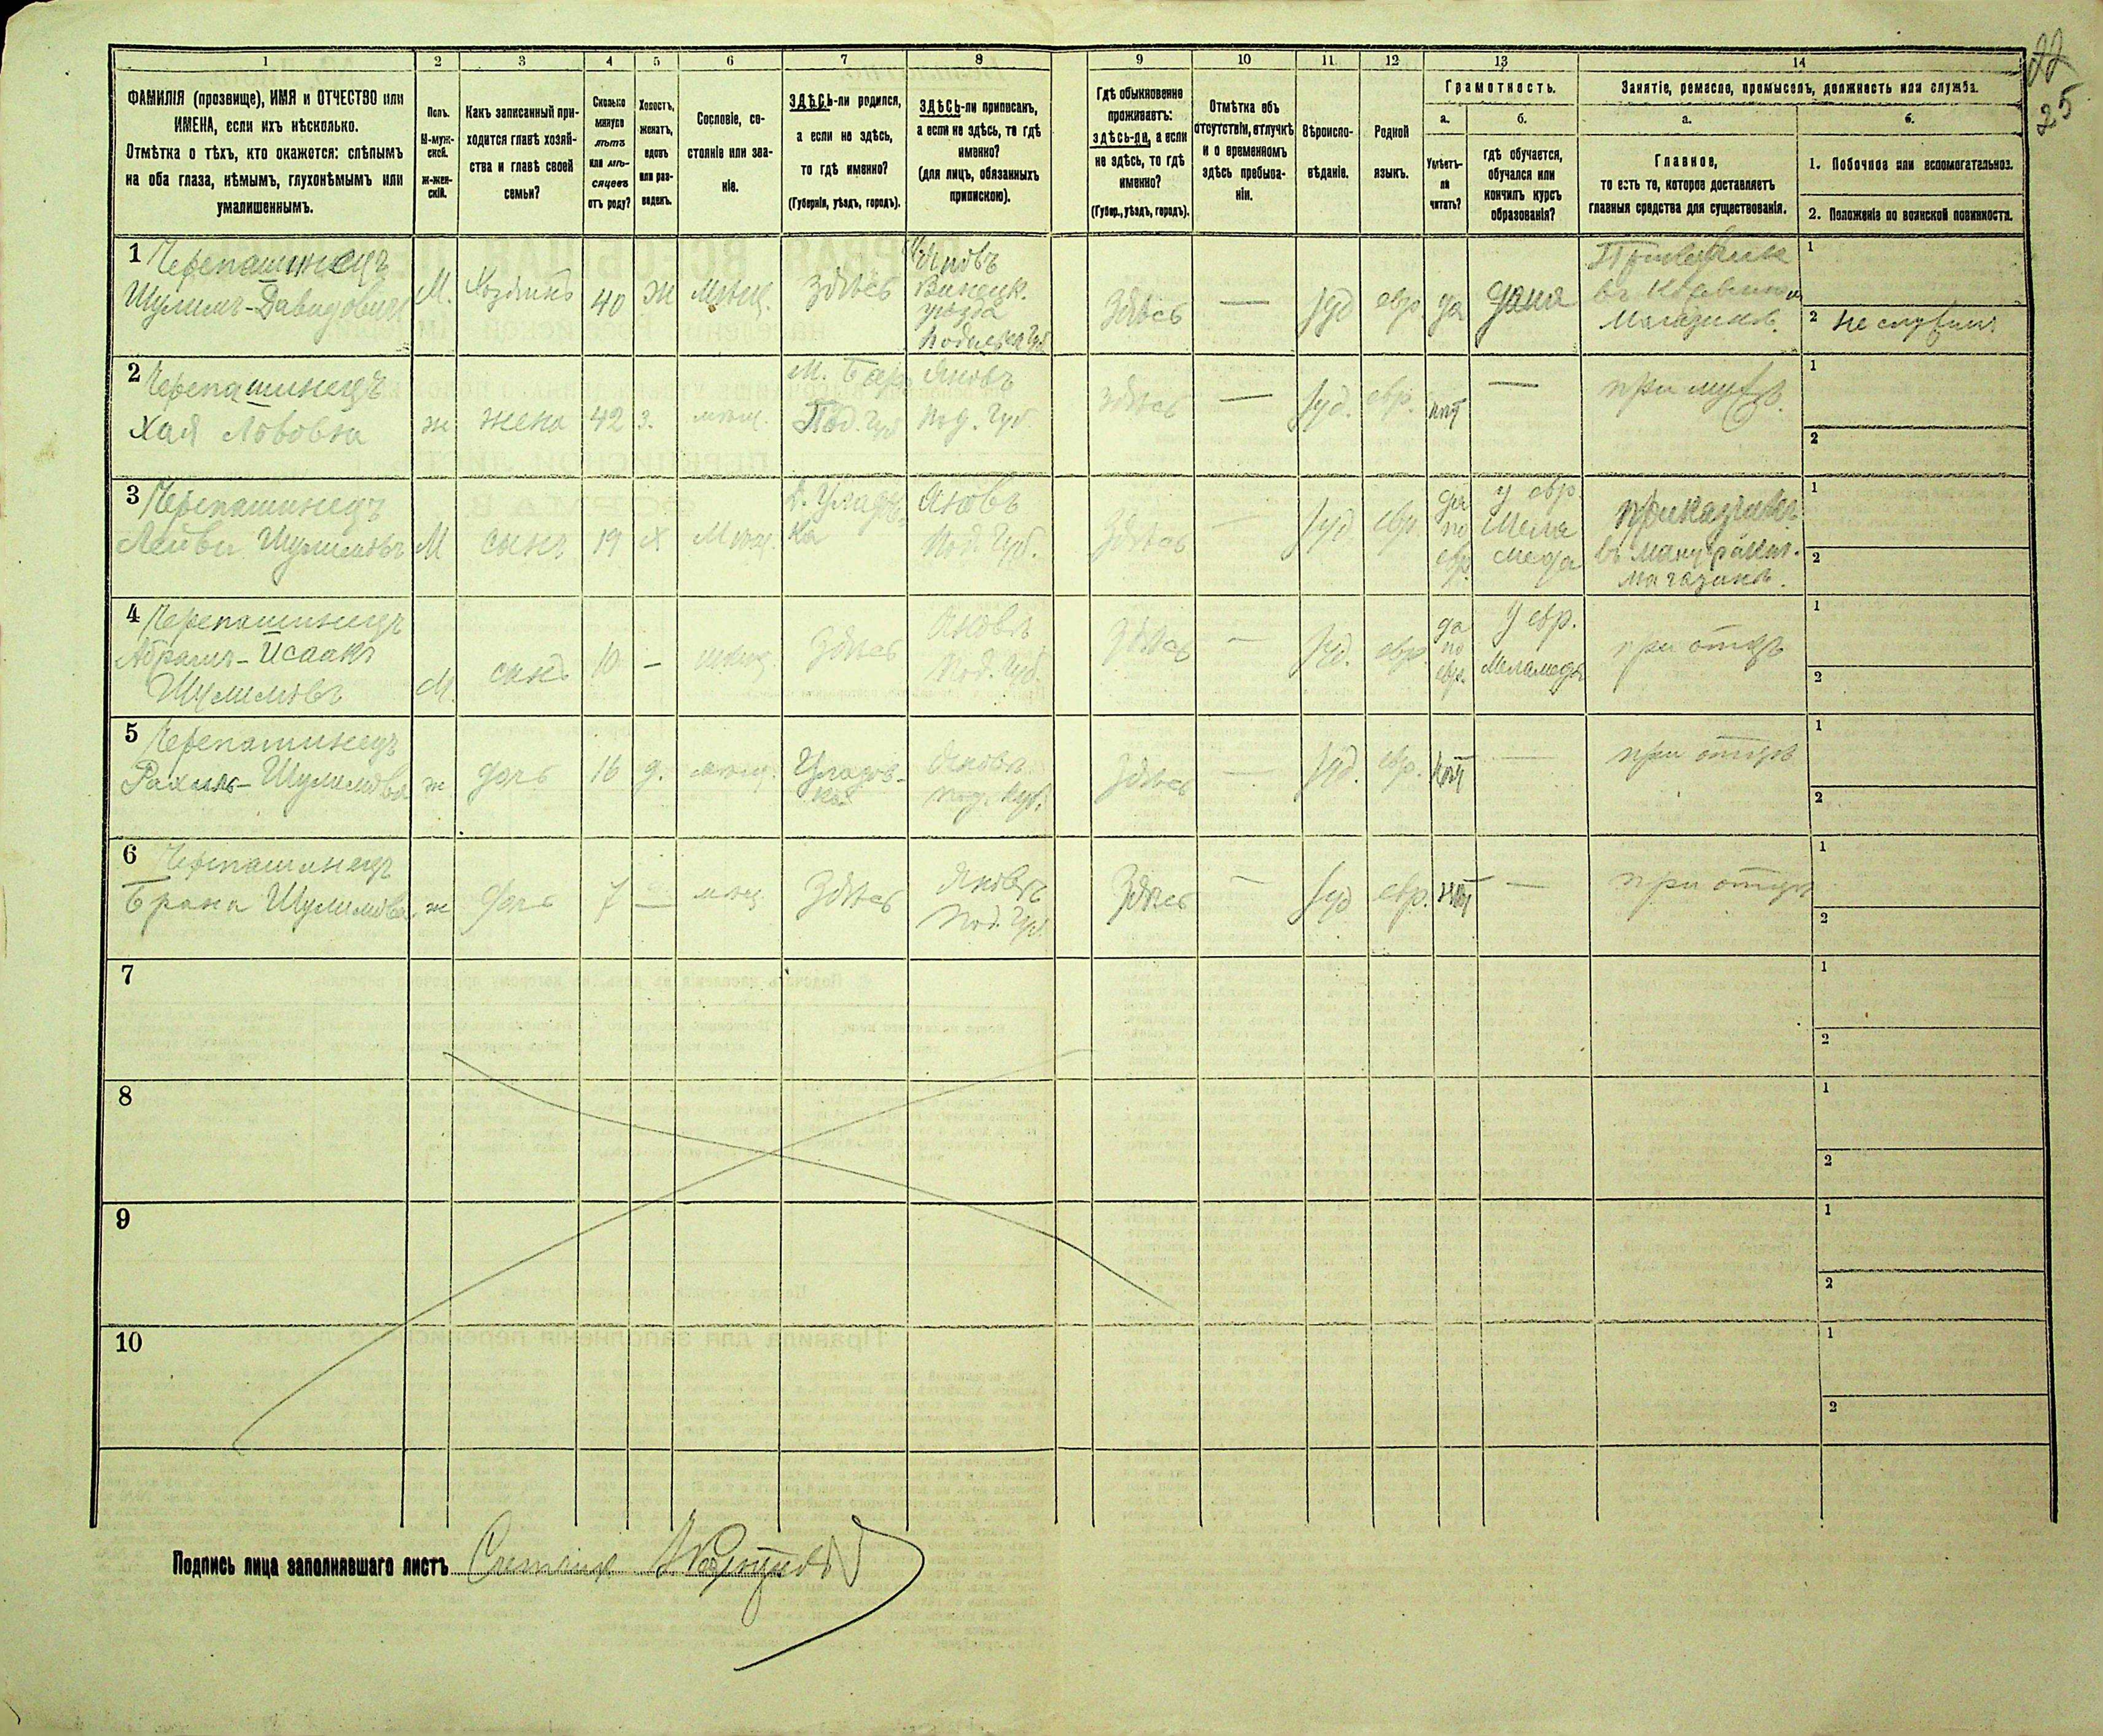 22
25
1 2 3 4 5 6 7 8 9 10 11 12 13 14
ФАМИЛІЯ (прозвище), ИМЯ и ОТЧЕСТВО или
ИМЕНА, если ихъ нѣсколько.
Отмѣтка о тѣхъ, кто окажется: слѣпымъ
на оба глаза, нѣмымъ, глухонѣмымъ или
умалишеннымъ.
Полъ.
М-муж-
ской.
ж-жен-
скій.
Какъ записанный при-
ходится главѣ хозяй-
ства и главѣ своей
семьи?
Сколько
минуло
лѣтъ
или мѣ-
сяцевъ
отъ роду?
Холостъ,
женатъ,
вдовъ
или раз-
веденъ.
Сословіе, со-
стояніе или зва-
ніе.
ЗДѢСЬ-ли родился,
а если не здѣсь,
то гдѣ именно?
(Губернія, уѣздъ, городъ).
ЗДѢСЬ-ли приписанъ,
а если не здѣсь, то гдѣ
именно?
(для лицъ, обязанныхъ
припискою).
Гдѣ обыкновенно
проживаетъ:
здѣсь-ли, а если
не здѣсь, то гдѣ
именно?
(Губер., уѣздъ, городъ).
Отмѣтка объ
отсутствіи, отлучкѣ
и о временномъ
здѣсь пребыва-
ніи.
Вѣроиспо-
вѣданіе.
Родной
языкъ.
Грамотность.
а.
Умѣетъ-
ли
читать?
б.
гдѣ обучается,
обучался или
кончилъ курсъ
образованія?
Занятіе, ремесло, промыселъ, должность или служба.
а.
Главное,
то есть то, которое доставляетъ
главныя средства для существованія.
б.
1. Побочное или вспомогательное.
2. Положеніе по воинской повинности.
1 Черепашинецъ
Шулимъ-Давидовичъ
М. Хозяинъ 40 Ж мѣщ. Здѣсь
Яновъ
Винецк.
уѣзда
Подильск Губ
Здѣсь — Іуд евр да дома
въ
Магазинѣ.
1
2 Не служилъ
2 Черепашинецъ
Хая Лововна
ж жена 42 з. мѣщ.
М. Бар
Под. Губ
Яновъ
Под. Губ
Здѣсь — Іуд. евр. нѣт — при мужѣ.
1
2
3 Черепашинецъ
Лейви Шулимовъ
М сынъ 19 Х Мѣщ.
Уладов-
ка
Яновъ
Под. Губ.
Здѣсь — Іуд евр.
да
по
евр.
у евр.
Мела
меда
приказчикъ
въ мануфакт.
магазинѣ.
1
2
4 Черепашинецъ
Абрамъ-Исаакъ
Шулимовъ
М. сынъ 10 — мѣщ. Здѣсь
Яновъ
Под. Губ.
Здѣсь — Іуд. евр.
да
по
евр.
У евр.
Меламеда
при отцѣ
1
2
5 Черепашинецъ
Рахиль-Шулимова
ж дочь 16 д. мѣщ.
Уладов-
ка
Яновъ
Под. Губ.
Здѣсь — Іуд. евр. нѣт — при отцѣ
1
2
6 Черепашинецъ
Брана Шулимова
ж дочь 7 — мѣщ Здѣсь
Яновъ
Под. Губ.
Здѣсь — Іуд евр. нѣт — при отцѣ
1
2
7
1
2
8
1
2
9
1
2
10
1
2
Подпись лица заполнявшаго листъ